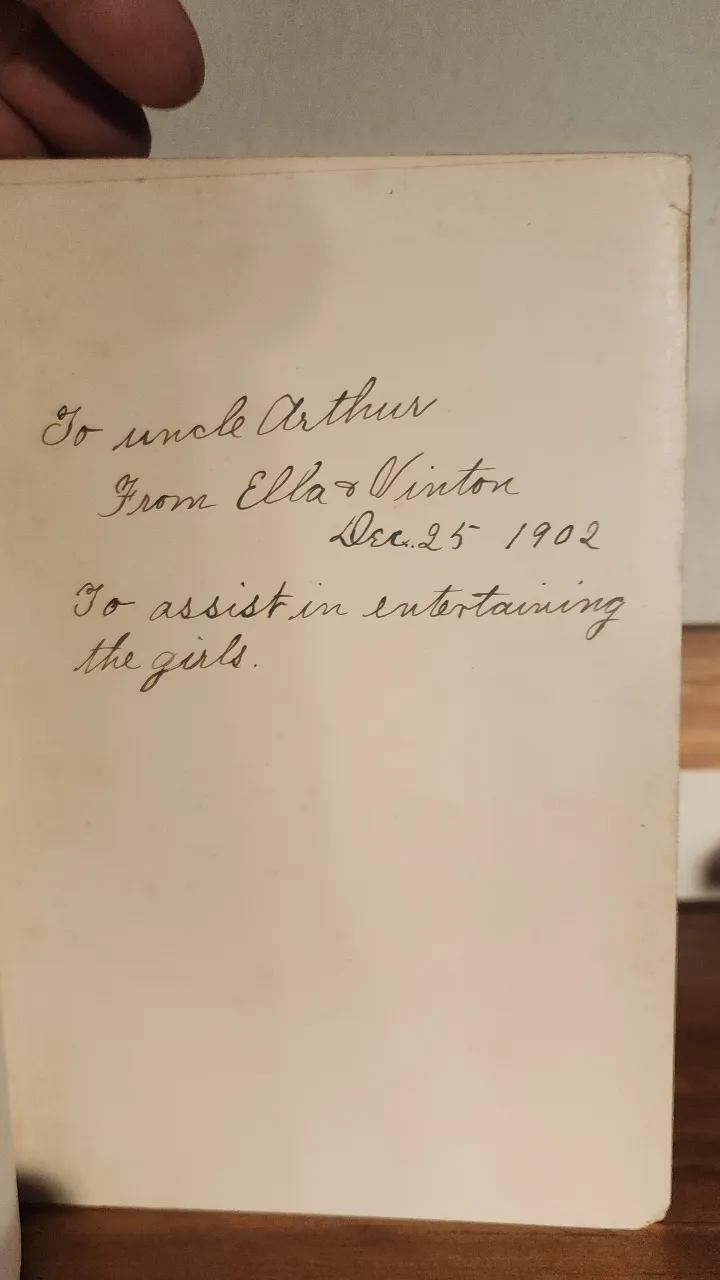 To uncle Arthur
From Ella & Vinton
Dec. 25 1902
To assist in entertaining
the girls.